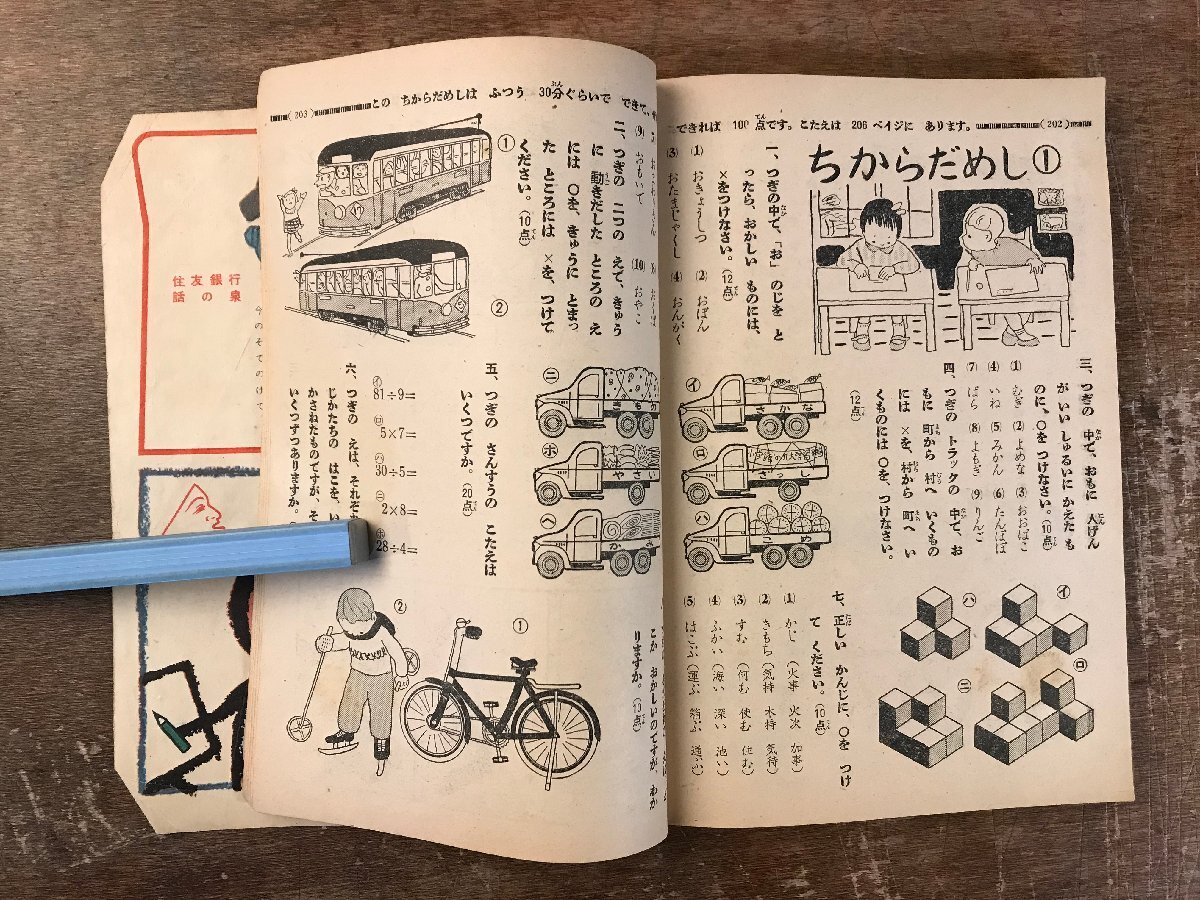 できれば 100点です。こたえは 206 ペイジに あります。
(202)
ちからだめし①
一、つぎの中で、「お」のじを と
ったら、おかしい ものには、
×をつけなさい。(12点)
(1) おきょうしつ
(2) おぼん
(3) おたまじゃくし
(4) おんがく
三、つぎの 中で、おもに 人げん
が いい しゅるいに かえた も
のに、○を つけなさい。(10点)
(1) むぎ (2) よめな (3) おおばこ
(4) いね (5) みかん (6) たんぽぽ
(7) ばら (8) よもぎ (9) りんご
四、つぎの トラックの 中で、お
もに 町から 村へ いくもの
には ×を、村から 町へ い
くものには ○を、つけなさい。
(12点)
イ
さかな
ロ
ざっし
ハ
こめ
七、正しい かんじに、○を つけ
て ください。(10点)
(1) かじ (火事 火次 加事)
(2) きもち (気持 木持 気待)
(3) すむ (何む 使む 住む)
(4) ふかい (海い 深い 池い)
(5) はこぶ
イ
ロ
ハ
ニ
(203)
この ちからだめしは ふつう 30分ぐらいで できて、
(9) おもいて
(10) おやこ
二、つぎの 二つの えで、きゅう
に 動きだした ところの え
には ○を、きゅうに とまっ
た ところには ×を、つけて
ください。(10点)
①
②
ニ
ホ
やさい
ヘ
か
五、つぎの さんすうの こたえは
いくつですか。(20点)
イ 81÷9=
ロ 5×7=
ハ 30÷5=
ニ 2×8=
ホ 28÷4=
六、つぎの えは、それぞれ
じかたちの はこを、い
かさねたものですが、そ
いくつずつありますか。
こが おかしいのですが、わか
りますか。(10点)
①
②
住友銀行
話の泉